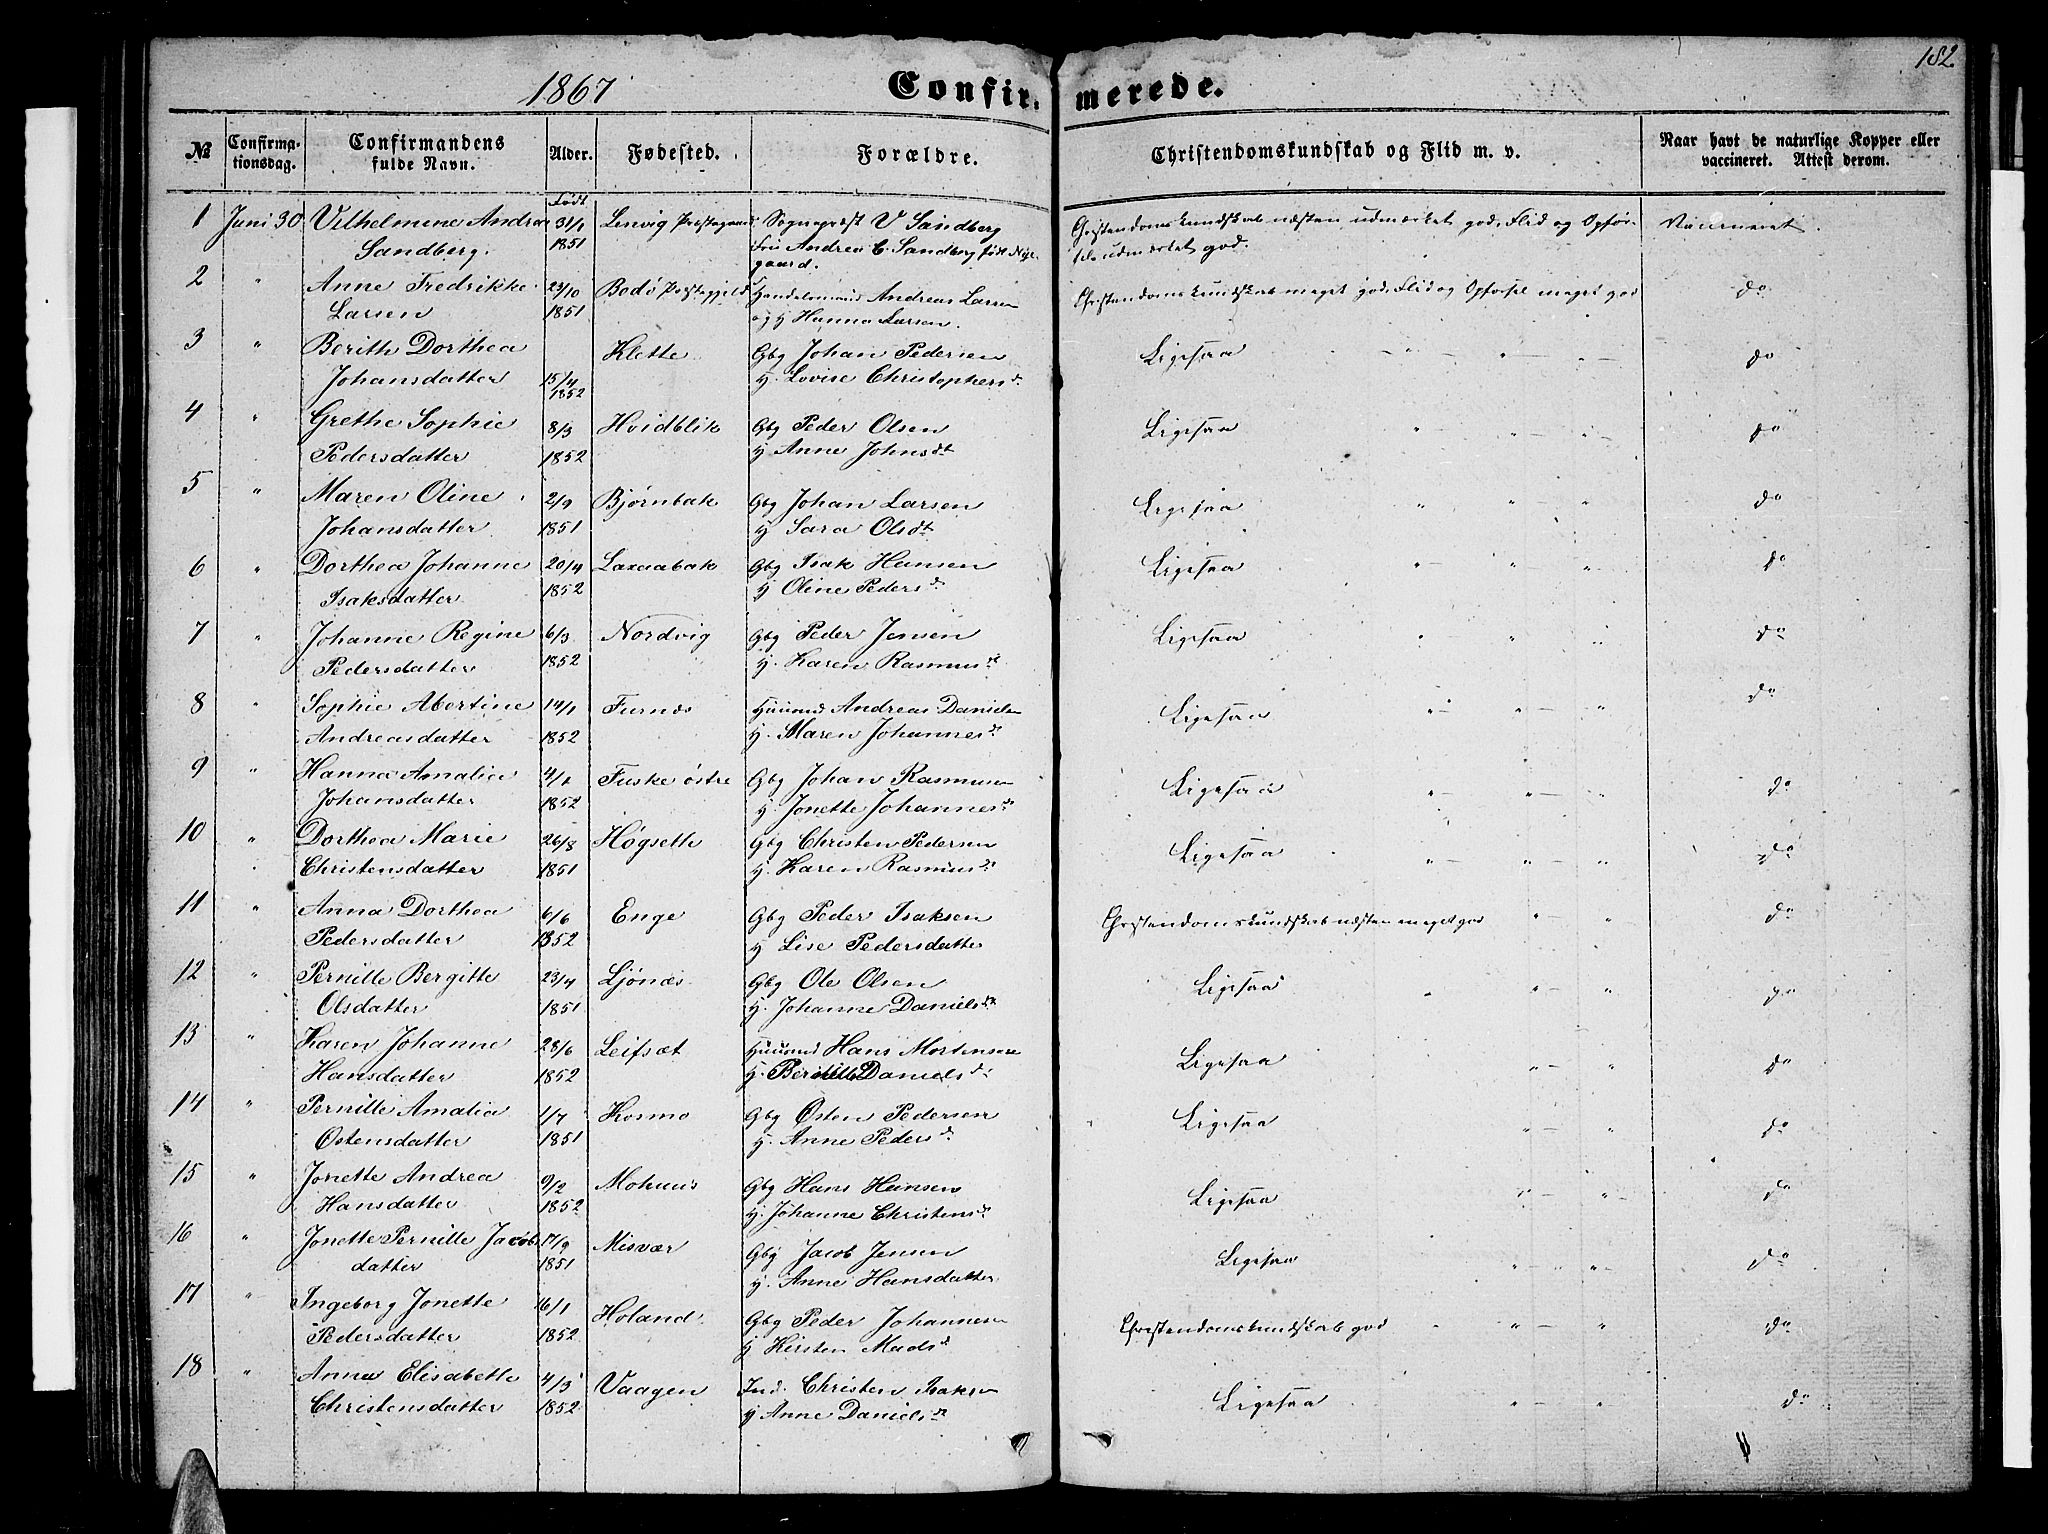 182
1867
Confir-
merede.
№
Confirma-
tionsdag.
Confirmandens
fulde Navn.
Alder.
Fødested.
Forældre.
Christendomskundskab og Flid m. v.
Naar havt de naturlige Kopper eller
vaccineret. Attest derom.
Født
1 Juni 30 Vilhelmine Andrea 31/1 Lenvig Præstegaard Sogneprest V Sandberg Christendomskundskab næsten udmærket god, Flid og Opfør- Vaccineret.
Sandberg. 1851 Fru Andrea C. Sandberg født Nye- sel udmærket god.
gaard.
2 " Anne Fredrikke 23/10 Bodø Præstegjeld Handelsmand Andreas Larsen Christendomskundskab meget god, Flid og Opførsel meget god do
Larsen 1851 og H Hanna Larsen.
3 " Berith Dorthea Klette Gbg Johan Pedersen Ligesaa " " " do
Johansdatter 15/4 H. Lovise Christophersd.
1852
4 " Grethe Sophie 8/3 Hvidblik Gbg Peder Olsen Ligesaa " " " do
Pedersdatter 1852 H Anne Johnsdt
5 " Maren Oline 2/9 Bjørnbak Gbg Johan Larsen Ligesaa " " " do
Johansdatter 1851 H Sara Olsdt
6 " Dorthea Johanne 20/4 Laxaabak Gbg Isak Hansen Ligesaa " " " do
Isaksdatter 1852 H Oline Pedersd.
7 " Johanne Regine 6/3 Nordvig Gbg Peder Jensen Ligesaa " " " do
Pedersdatter 1852 H. Karen Rasmusdt
8 " Sophie Abertine 14/1 Furnæs Huusmd Andreas Danielsen Ligesaa " " " do
Andreasdatter 1852 H. Maren Johannesd.
9 " Hanna Amalia 4/2 Fuske østre Gbg Johan Rasmussen Ligesaa " " " do
Johansdatter 1852 H. Jonette Johannesdt
10 " Dorthea Marie 26/8 Høgsette Gbg Christen Pedersen Ligesaa " " " do
Christensdatter 1851 H. Karen Rasmusdt
11 " Anna Dorthea 6/6 Enge Gbg Peder Isaksen Christendomskundskab næsten meget god " " do
Pedersdatter 1852 H Lise Pedersdatter
12 " Pernille Bergitte 23/4 Ljønæs Gbg Ole Olsen Ligesaa " " " do
Olsdatter 1851 H. Johanne Danielsdt
13 " Karen Johanne 28/6 Leifsæt Huusmd Hans Mortensen Ligesaa " " do
Hansdatter 1852 H. Danielsdt
14 " Pernille Amalia 1/7 Kosmo Gbg Østen Pedersen Ligesaa " " do
Østensdatter 1851 H. Anne Pedersd.
15 " Jonette Andrea 9/2 Gbg Hans Hansen Ligesaa " " do
Hansdatter 1852 H. Johanne Christensdt
16 " Jonette Pernille Jacobs 17/9 Misvær Gbg Jacob Jensen Ligesaa " " " do
datter 1851 H. Anne Hansdatter
17 " Ingeborg Jonette 16/1 Holand Gbg Peder Johannesen Christendomskundskab god " " " do
Pedersdatter 1852 H Kirsten Madsd
18 " Anna Elisabeth 4/3 Vaagen Ind. Christen Isaksen Ligesaa " " do
Christensdatter 1852. H Anne Danielsdt